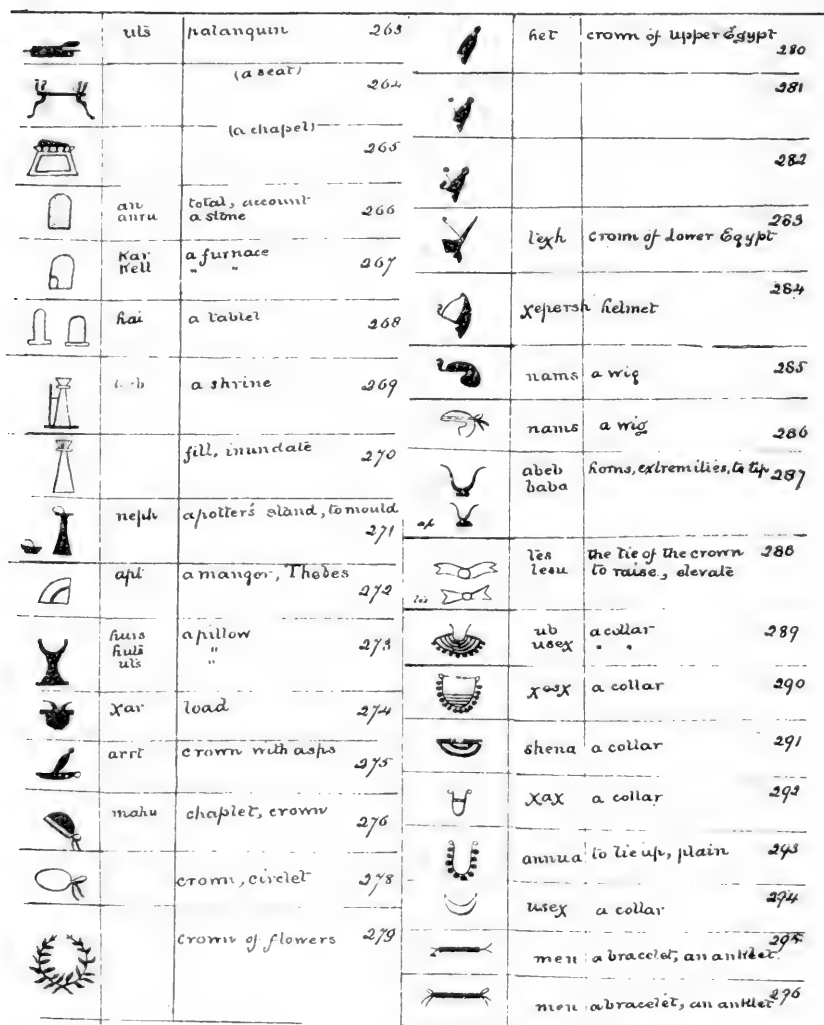 uts palanquin 263
(a seat) 264
(a chapel) 265
an total, account
anru a stone 266
Kar a furnace
Kell " " 267
hai a tablet 268
a shrine 269
fill, inundate 270
neph a potter's stand, to mould 271
apt a manger, Thebes 272
huts a pillow
uts " 273
χar load 274
arrt crown with asps 275
mahu chaplet, crown 276
crown, circlet 278
crown of flowers 279
het crown of upper Egypt 280
281
282
teχh crown of lower Egypt 283
χepersh helmet 284
nams a wig 285
nams a wig 286
abeb horns, extremities, to tip 287
baba
ap
tes the tie of the crown 288
tesu to raise, elevate
tes
ub a collar 289
useχ " "
a collar 290
shena a collar 291
χaχ a collar 292
annua to tie up, plain 293
useχ a collar 294
men a bracelet, an anklet 295
men a bracelet, an anklet 296